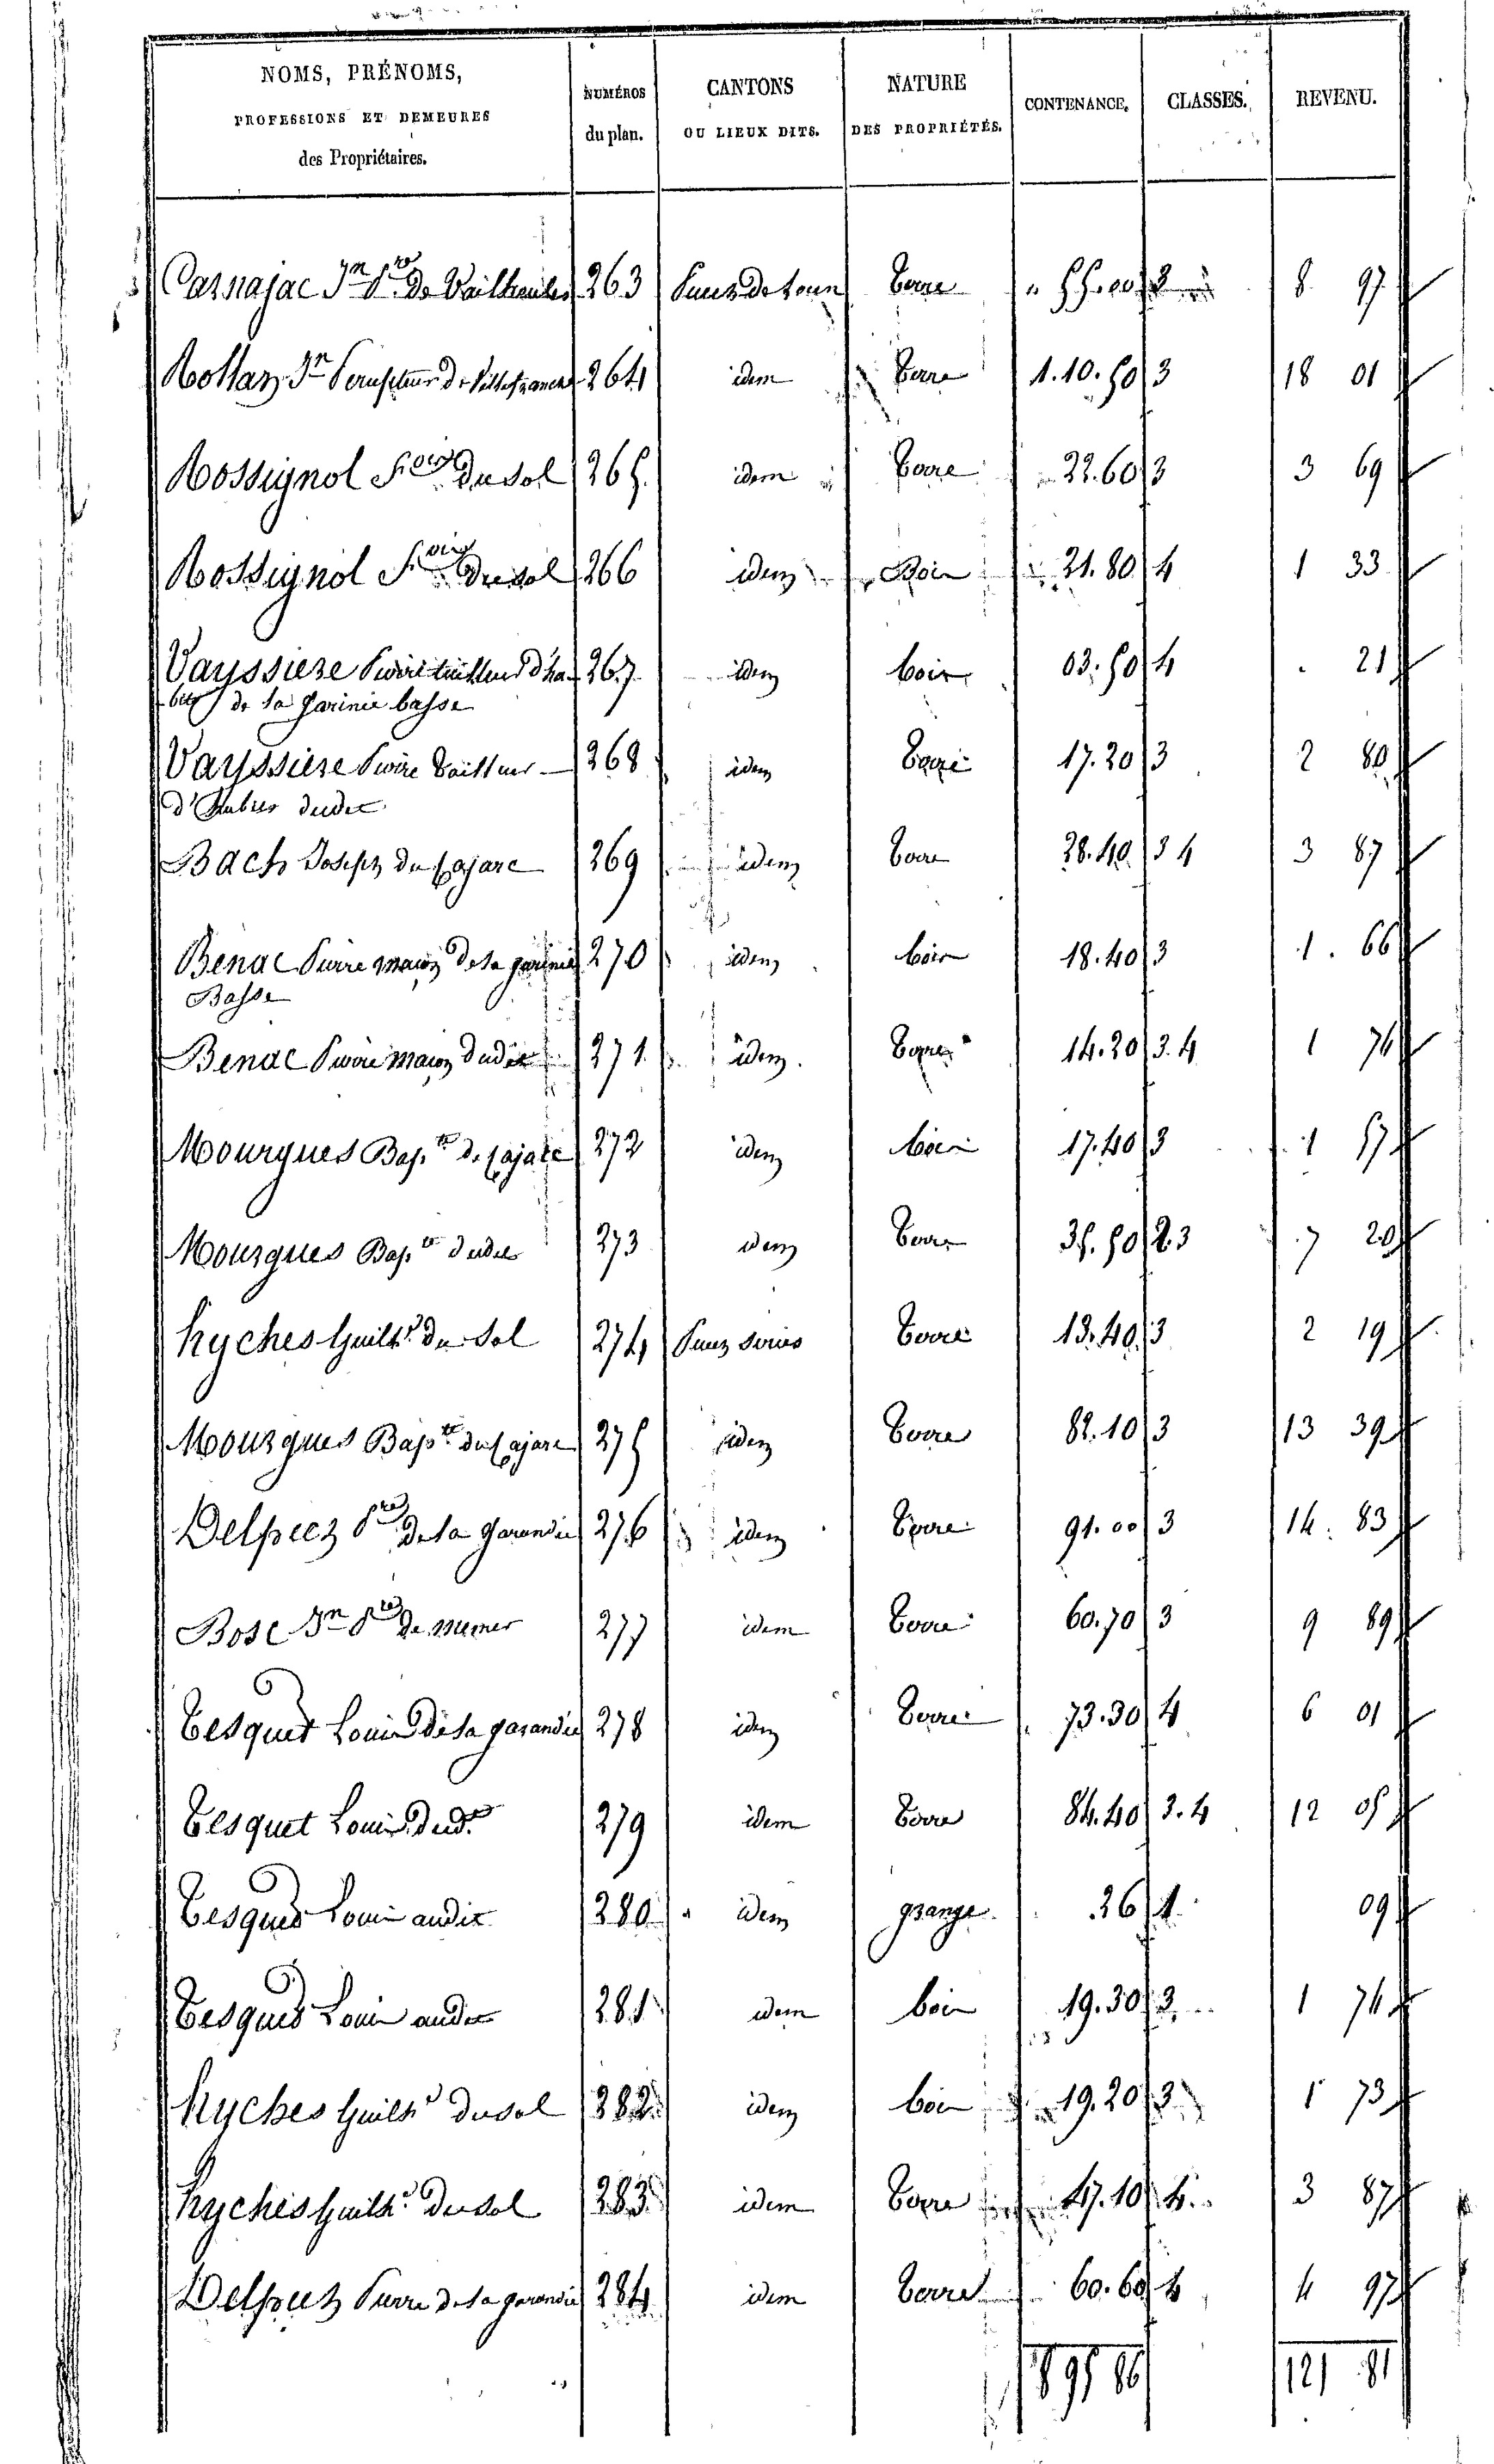 NOMS, PRÉNOMS,
PROFESSIONS ET DEMEURES
des Propriétaires.
NUMÉROS
du plan.
CANTONS
OU LIEUX DITS.
NATURE
DES PROPRIÉTÉS.
CONTENANCE.
CLASSES.
REVENU.
Carnajac Jn Pre De 263 terre 8 97
Jn de Villefranche 264 idem terre 1.10.50 3 18 01
Rossignol du sol 265 idem terre 22.60 3 3 69
Rossignol du sol 266 idem Bois 21.80 4 1 33
Vayssiere Pierre tailleur d'ha- 267 idem bois 03.50 4 21
bits de la Garinie basse
Vayssiere Pierre tailleur 268 idem terre 17.20 3 2 80
d'habits dudit
Bach Joseph de Cajarc 269 idem terre 28.40 3 4 3 87
Benac Pierre maçon de la garinie 270 idem bois 18.40 3 1.66
Basse
Benac Pierre maçon dudit 271 idem terre 14.20 3.4 1 74
Mourgues Bapte de Cajarc 272 idem bois 17.40 3 1 57
Mourgues Bapte dudit 273 idem terre 35.50 2.3 7 20
hyches Guille du Sol 274 terre 13.40 3 2 19
Mourgues Bapte de Cajarc 275 idem terre 82.10 3 13 39
Delpech Pre de la Garandie 276 idem terre 91.00 3 14.83
Bosc Jn Pre de 277 idem terre 60.70 3 9 89
Tesquet Louis de la garandie 278 idem terre 73.30 4 6 01
Tesquet Louis dud. 279 idem terre 84.40 3.4 12 05
Tesquet Louis audit 280 idem grange .26 1 09
Tesquet Louis audit 281 idem bois 19.30 3 1 74
hyches Guille du sol 282 idem bois 19.20 3 1 73
hyches Guille du sol 283 idem terre 47.10 4 3 87
Delpech Pierre de la garandie 284 idem terre 60.60 4 4 97
895 86 121 81